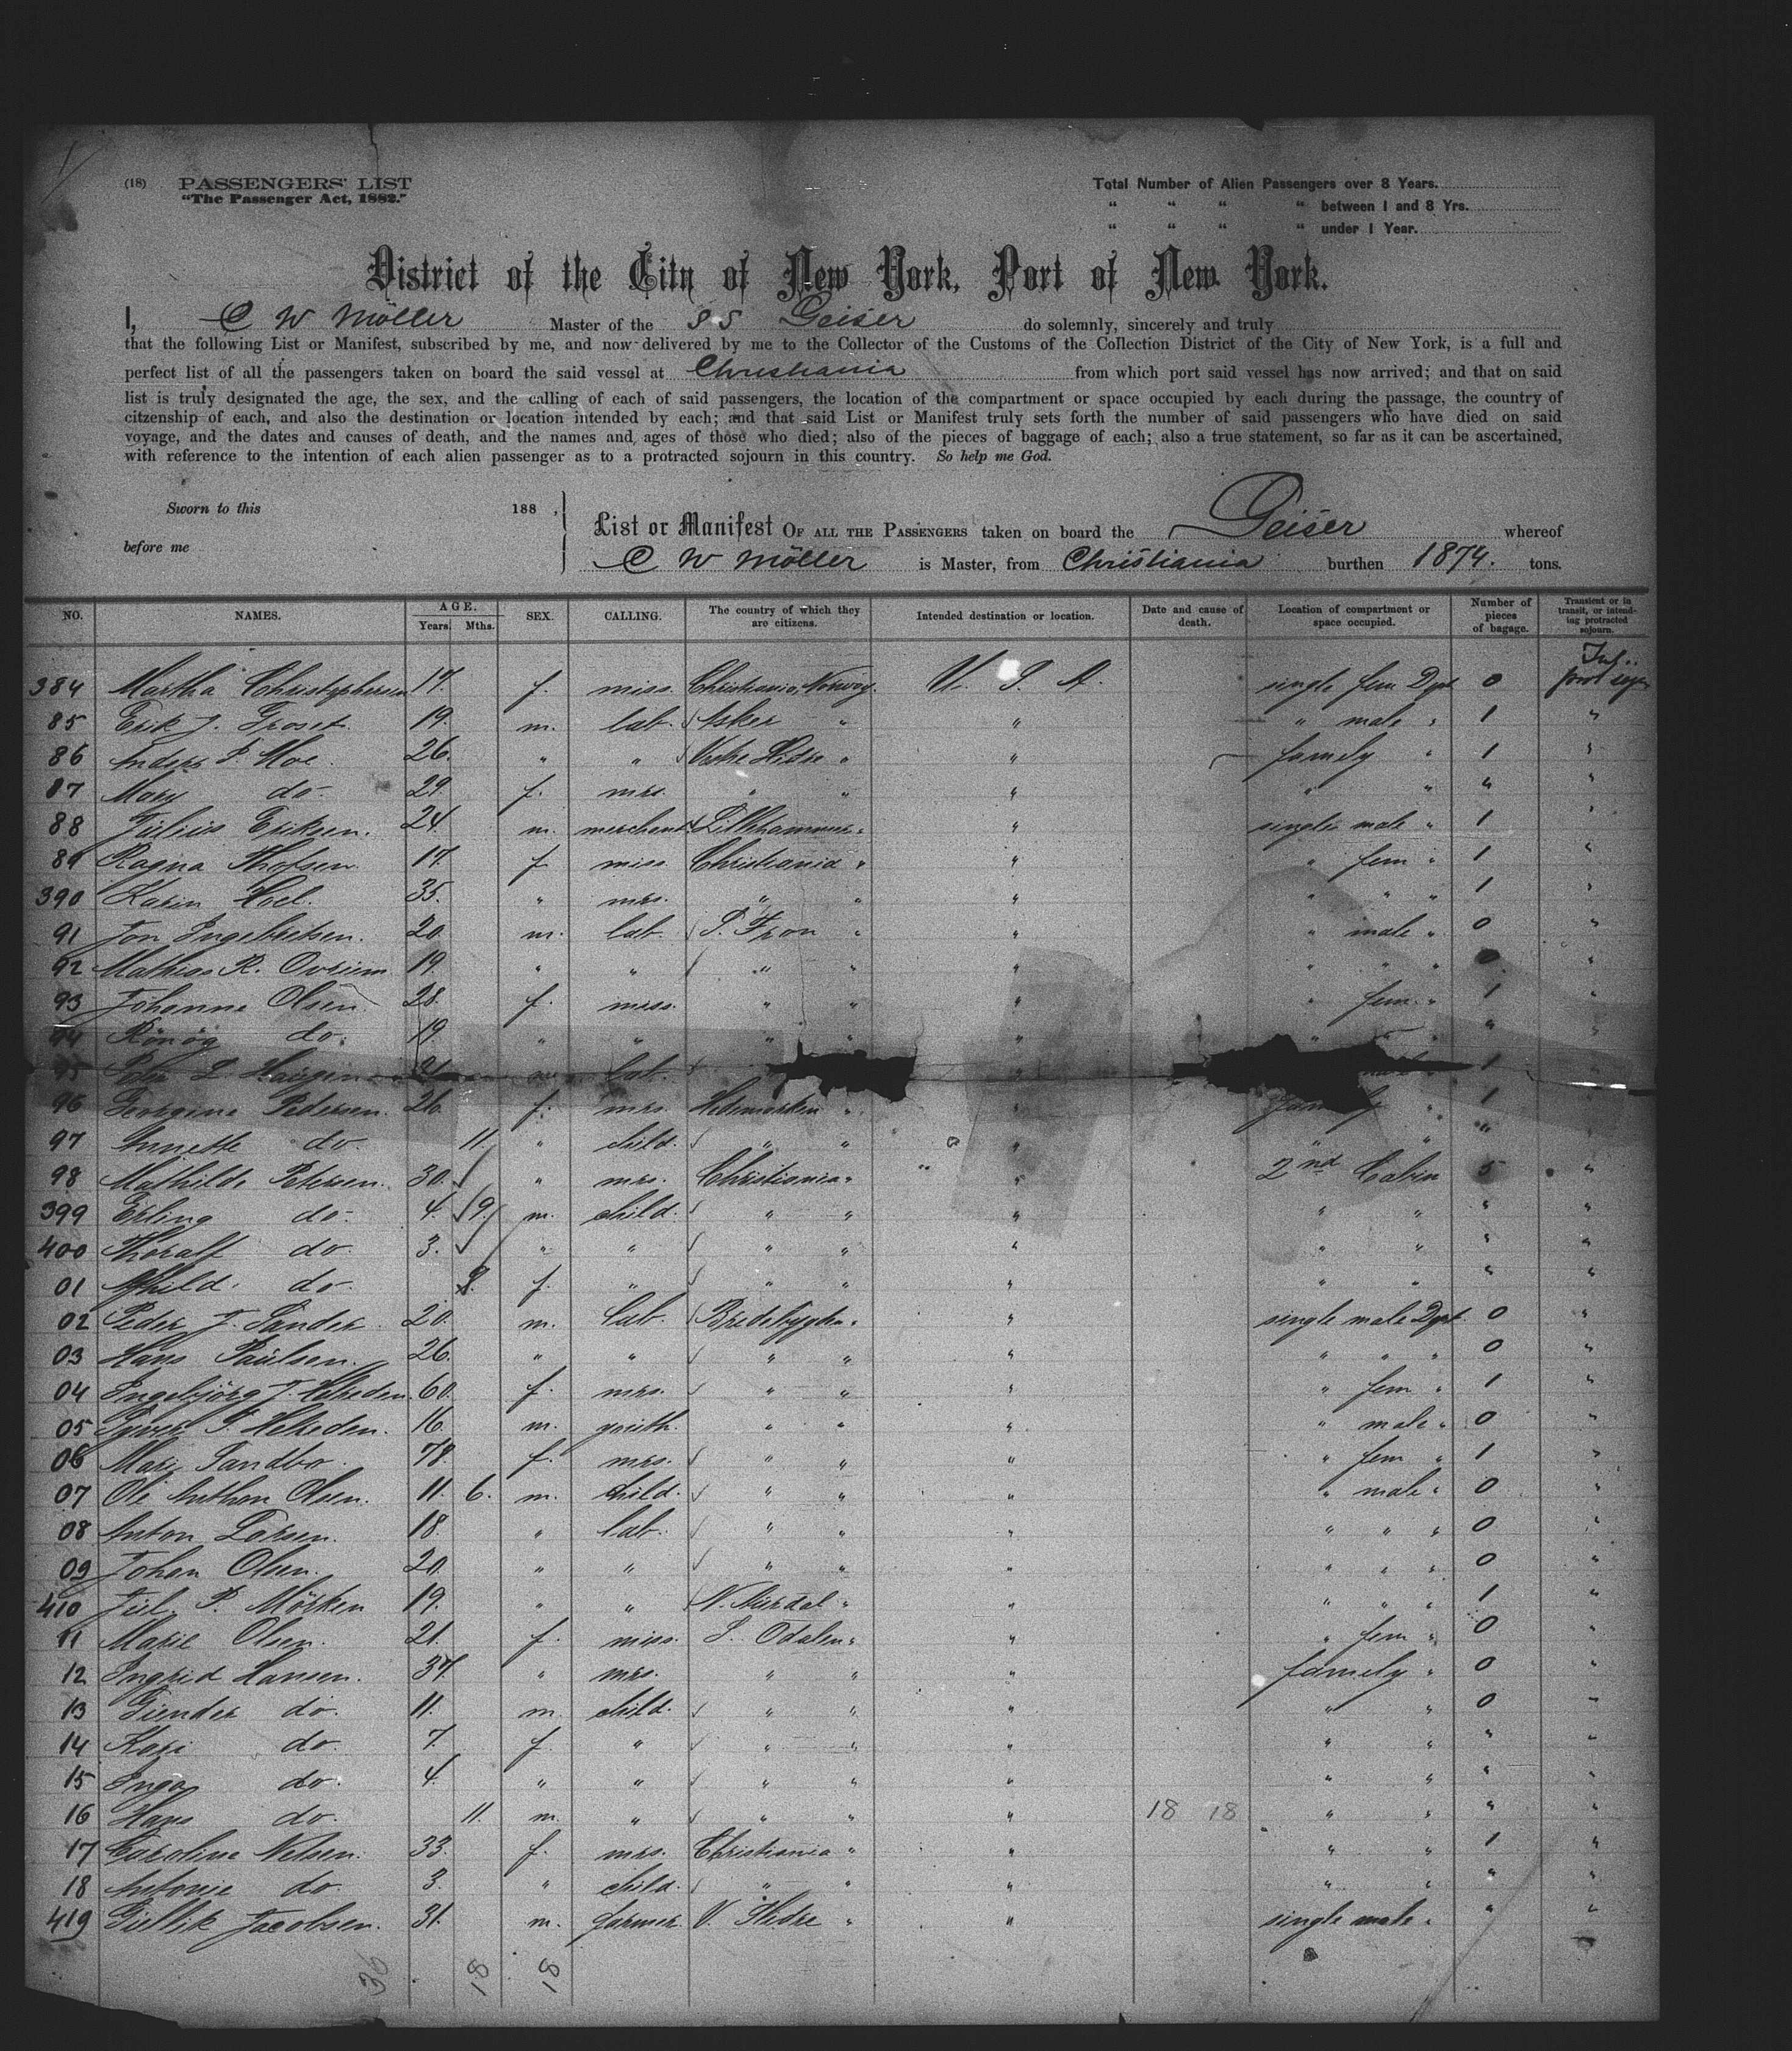 (18) PASSENGERS' LIST
"The Passenger Act, 1882."
Total Number of Alien Passengers over 8 Years.
" " " " between 1 and 8 Yrs.
" " " " under 1 Year.
District of the City of New York, Port of New York.
I, C W Möller Master of the SS Geiser do solemnly, sincerely and truly
that the following List or Manifest, subscribed by me, and now delivered by me to the Collector of the Customs of the Collection District of the City of New York, is a full and
perfect list of all the passengers taken on board the said vessel at Christiania from which port said vessel has now arrived; and that on said
list is truly designated the age, the sex, and the calling of each of said passengers, the location of the compartment or space occupied by each during the passage, the country of
citzenship of each, and also the destination or location intended by each; and that said List or Manifest truly sets forth the number of said passengers who have died on said
voyage, and the dates and causes of death, and the names and ages of those who died; also of the pieces of baggage of each; also a true statement, so far as it can be ascertained,
with reference to the intention of each alien passenger as to a protracted sojourn in this country. So help me God.
Sworn to this 188 ,
before me
List or Manifest OF ALL THE PASSENGERS taken on board the Geiser whereof
C W Möller is Master, from Christiania burthen 1874. tons.
NO. NAMES. AGE. Years. Mths. SEX. CALLING. The country of which they are citizens. Intended destination or location. Date and cause of death. Location of compartment or space occupied. Number of pieces of bagage. Transient or in transit, or intending protracted sojourn.
384 Martha Christophersen 17. f. miss. Christiania, Norway. U. S. A. single fem Dpt 0
85 Erik J. Groset. 19. m. lab. Asker " " " male " 1 "
86 Anders P. Moe. 26. " " Vestre Slidre " " family " 1 "
87 Mary do. 29. f. mrs. " " " " " " "
88 Julius Eriksen. 24. m. merchant Lillehammer " " single male " 1 "
89 Ragna 17. f. miss Christiania " " " fem " 1 "
390 Karin Hoel. 35. " mrs. " " " " " " 1 "
91 Jon Ingebretsen. 20. m. lab. S. Fron " " " male " 0 "
92 Mathias R. 19. " " " " " " " " 0 "
93 Johanne Olsen 28. f. miss. " " " " fem. " 1 "
94 Rönög do. 19. " " " " " " "
95 21. m. lab. 1
96 Georgine Pedersen. 26. f. mrs. Hedemarken " " family " 1 "
97 Annette do. 11. " child. " " " " " " "
98 Mathilde Petersen. 30. " mrs. Christiania " " 2nd Cabin 5 "
399 Erling do. 4. 9. m. child. " " " " " " "
400 Thoralf do. 3. " " " " " " " " "
01 do. f. " " " " " " " "
02 Peder J. Sander. 20. m. lab. Bredebygden " " single male Dpt. 0 "
03 Hans Paulsen. 26. " " " " " " " " 0 "
04 Ingebjörg T. 60. f. mrs. " " " " fem " 1 "
05 16. m. " " " " male " 0 "
06 Mari Sandbo. 78. f. mrs. " " " " fem " 1 "
07 Ole Anthon Olsen. 11. 6. m. child. " " " " male " 0 "
08 Anton Larsen. 18. " lab. " " " " " " 0 "
09 Johan Olsen. 20. " " " " " " " " 0 "
410 P. Mörken 19. " " N. Aurdal " " " " " 1 "
11 Marie Olsen. 21. f. miss. S. Odalen " " " fem " 0 "
12 Ingrid Hansen. 37. " mrs. " " " family " 0 "
13 Gunder do. 11. m. child. " " " " " 0 "
14 Kari do. 7. f. " " " " " " " "
15 Inga do. 4. " " " " " " " " "
16 Hans do. 11. m. " " " " 18 18 " " " "
17 Caroline Nelsen. 33. f. mrs. Christiania " " " " 1 "
18 Antonie do. 3. " child. " " " " " " "
419 Gullik Jacobsen. 31. m. farmer. V. Slidre " " single male " " "
36 18 18